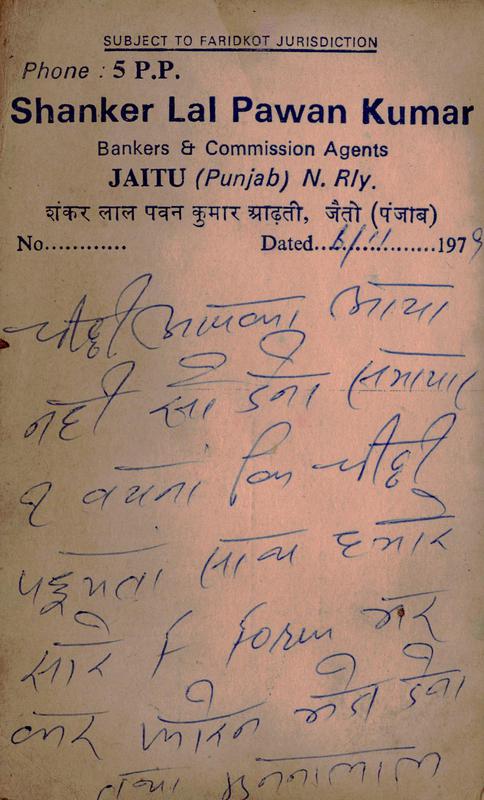 SUBJECT TO FARIDKOT JURISDICTION
Phone : 5 P.P.
Shanker Lal Pawan Kumar
Bankers & Commission Agents
JAITU (Punjab) N. Rly.
शंकर लाल पवन कुमार आढ़ती, जैतो (पंजाब)
No............ Dated...6/11................1979
चीठ्ठी आपका आया
नही सो देना समाचार
१ बचना कि चीठ्ठी
पहुचता साथ हमारे
सारे F Form भर
कर फोरन भेज देना
तथा